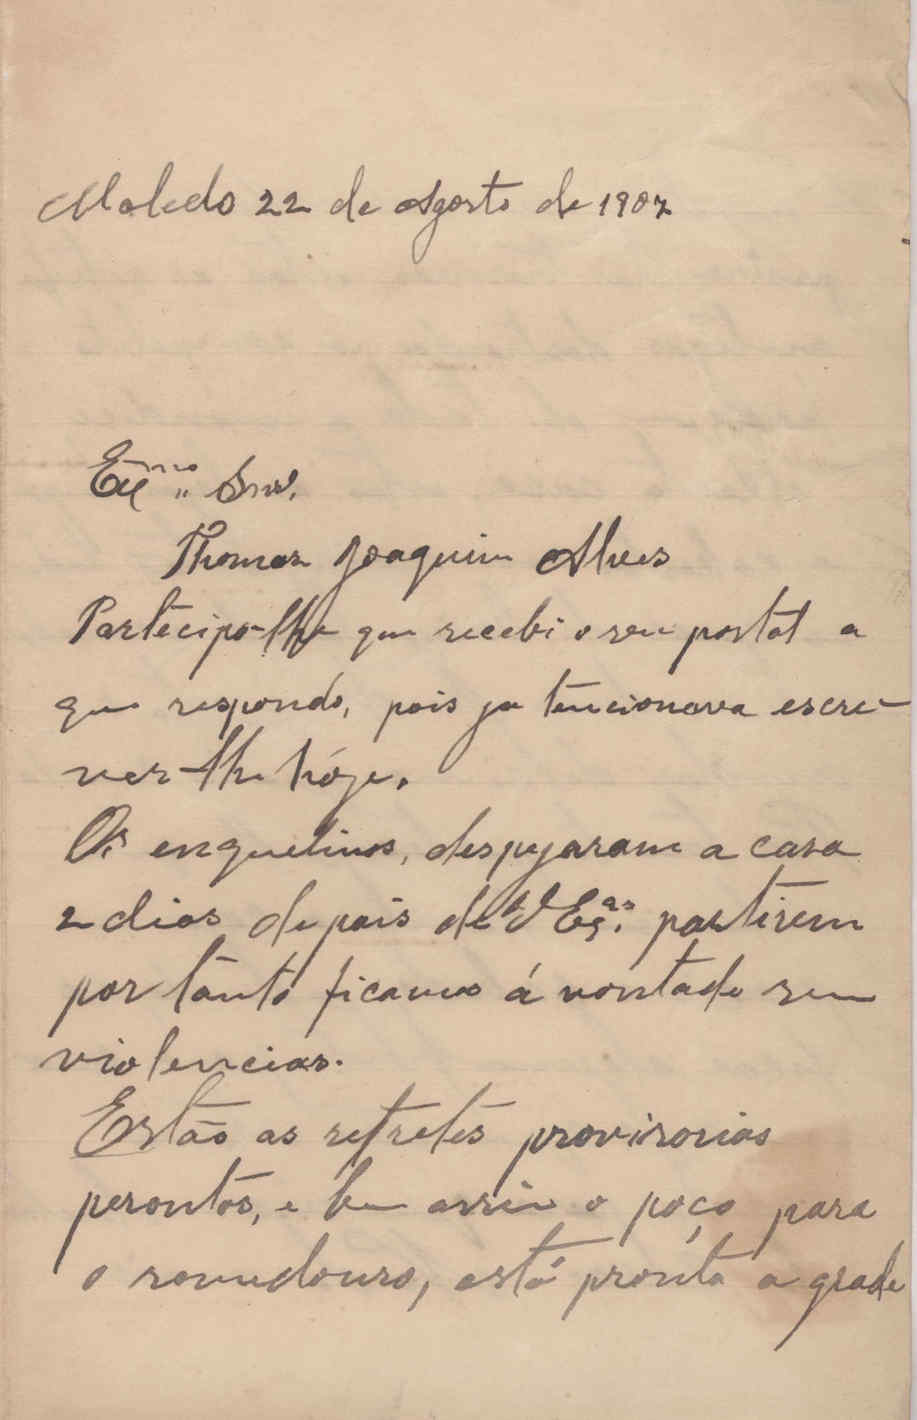 Moledo 22 de Agosto de 1907
Exmo Snr.
Thomaz Joaquim Alves
Partecipo-lhe que recebi o seu postal a
que respondo, pois ja tencionava escre-
ver-lhe hóje.
Os enquelinos, despejaram a casa
2 dias depois de V Exas. partirem
por tanto ficamos á vontade sem
violencias.
Estão as retretes provisorias
perontos, e bem assim o poço para
o sumidouro, está pronta a grade